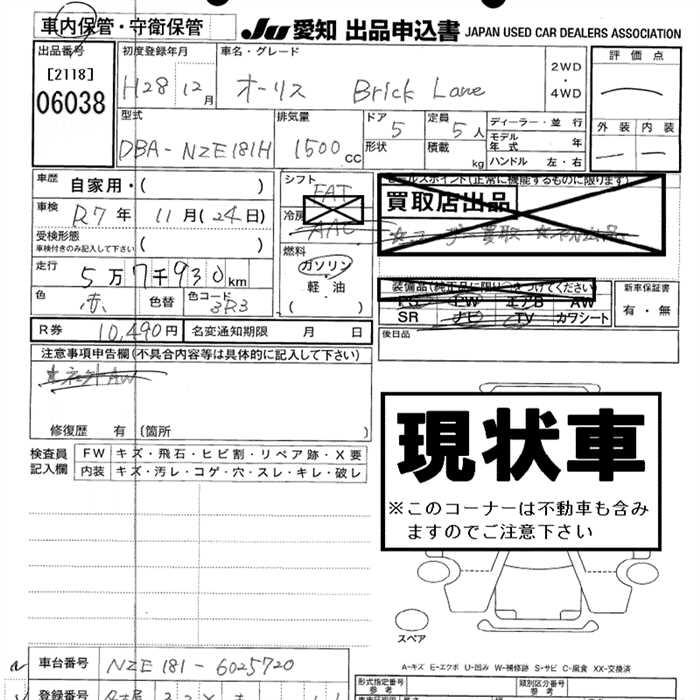 車内保管・守衛保管
JU 愛知 出品申込書 JAPAN USED CAR DEALERS ASSOCIATION
出品番号
[2118]
06038
初度登録年月
H28 12月
車名・グレード
オーリス Brick Lane
2WD
・
4WD
評価点
外装 内装
型式
DBA-NZE181H
排気量
1500cc
ドア 5
形状
定員 5人
積載 kg
ディーラー・並行
モデル年式 年
ハンドル 左・右
車歴 自家用・( )
車検 R7年 11月(24日)
受検形態
車検付きのみ記入して下さい ( )
走行 5万7千930km
色 赤 色替 色コード 3R3
シフト
FAT
冷房
AAC
燃料
ガソリン
・
軽油
( )
セールスポイント(正常に機能するものに限ります)
買取店出品
装備品(純正品に限り○をつけてください)
PS PW エアB AW
SR ナビ TV カワシート
新車保証書
有・無
後日品
R券 10,490円 名変通知期限 月 日
注意事項申告欄(不具合内容等は具体的に記入して下さい)
修復歴 有 〔箇所 〕
検査員記入欄
FW キズ・飛石・ヒビ割・リペア跡・X要
内装 キズ・汚レ・コゲ・穴・スレ・キレ・破レ
現状車
※このコーナーは不動車も含み
ますのでご注意下さい
スペア
A-キズ E-エクボ U-凹み W-補修跡 S-サビ C-腐食 XX-交換済
車台番号 NZE181-6025720
登録番号
形式指定番号
参考
類別区分番号
参考